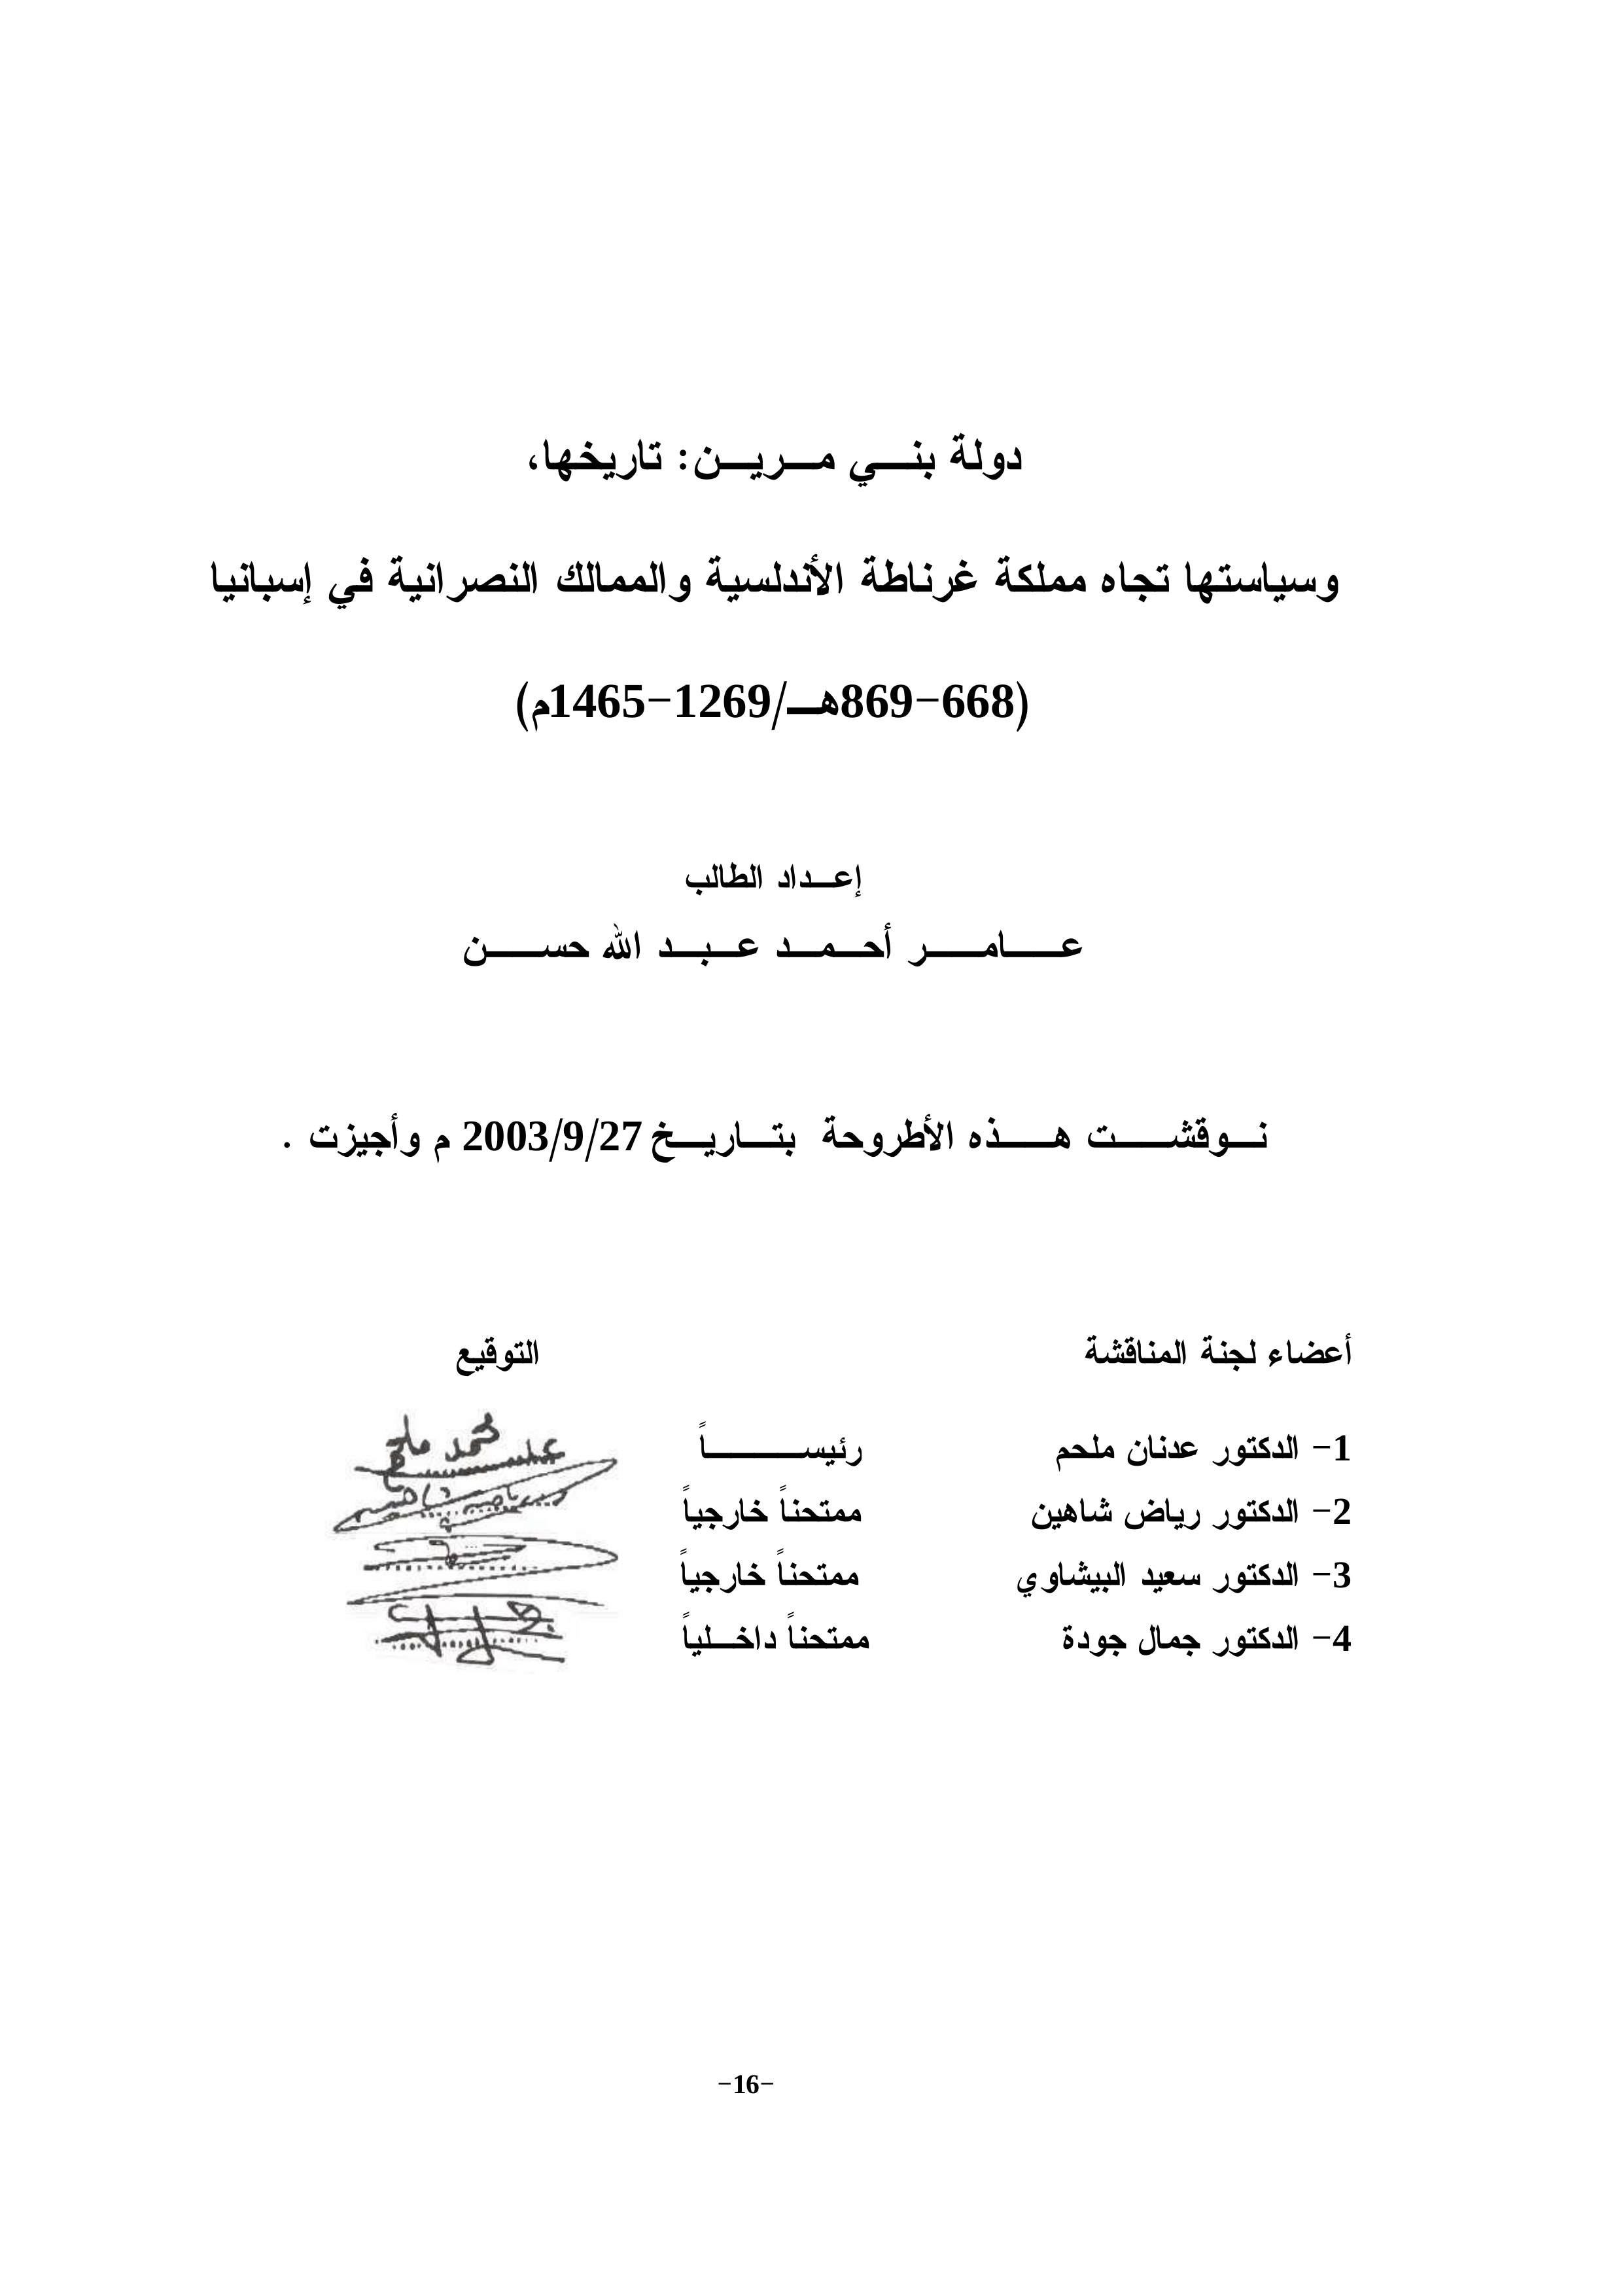 دولة بنـــي مـــريـــن: تاريخها،
وسياستها تجاه مملكة غرناطة الأندلسية والممالك النصرانية في إسبانيا
(668–869هـــ/1269–1465م)
إعـــداد الطالب
عــــــامــــــر أحـــمـــد عـــبـــد الله حســـــــن
نـــوقشــــــت هــــــذه الأطروحة بتـــاريـــخ 2003/9/27 م وأجيزت .
أعضاء لجنة المناقشة التوقيع
1– الدكتور عدنان ملحم رئيســــــــــاً
2– الدكتور رياض شاهين ممتحناً خارجياً
3– الدكتور سعيد البيشاوي ممتحناً خارجياً
4– الدكتور جمال جودة ممتحناً داخـــلياً
–16–